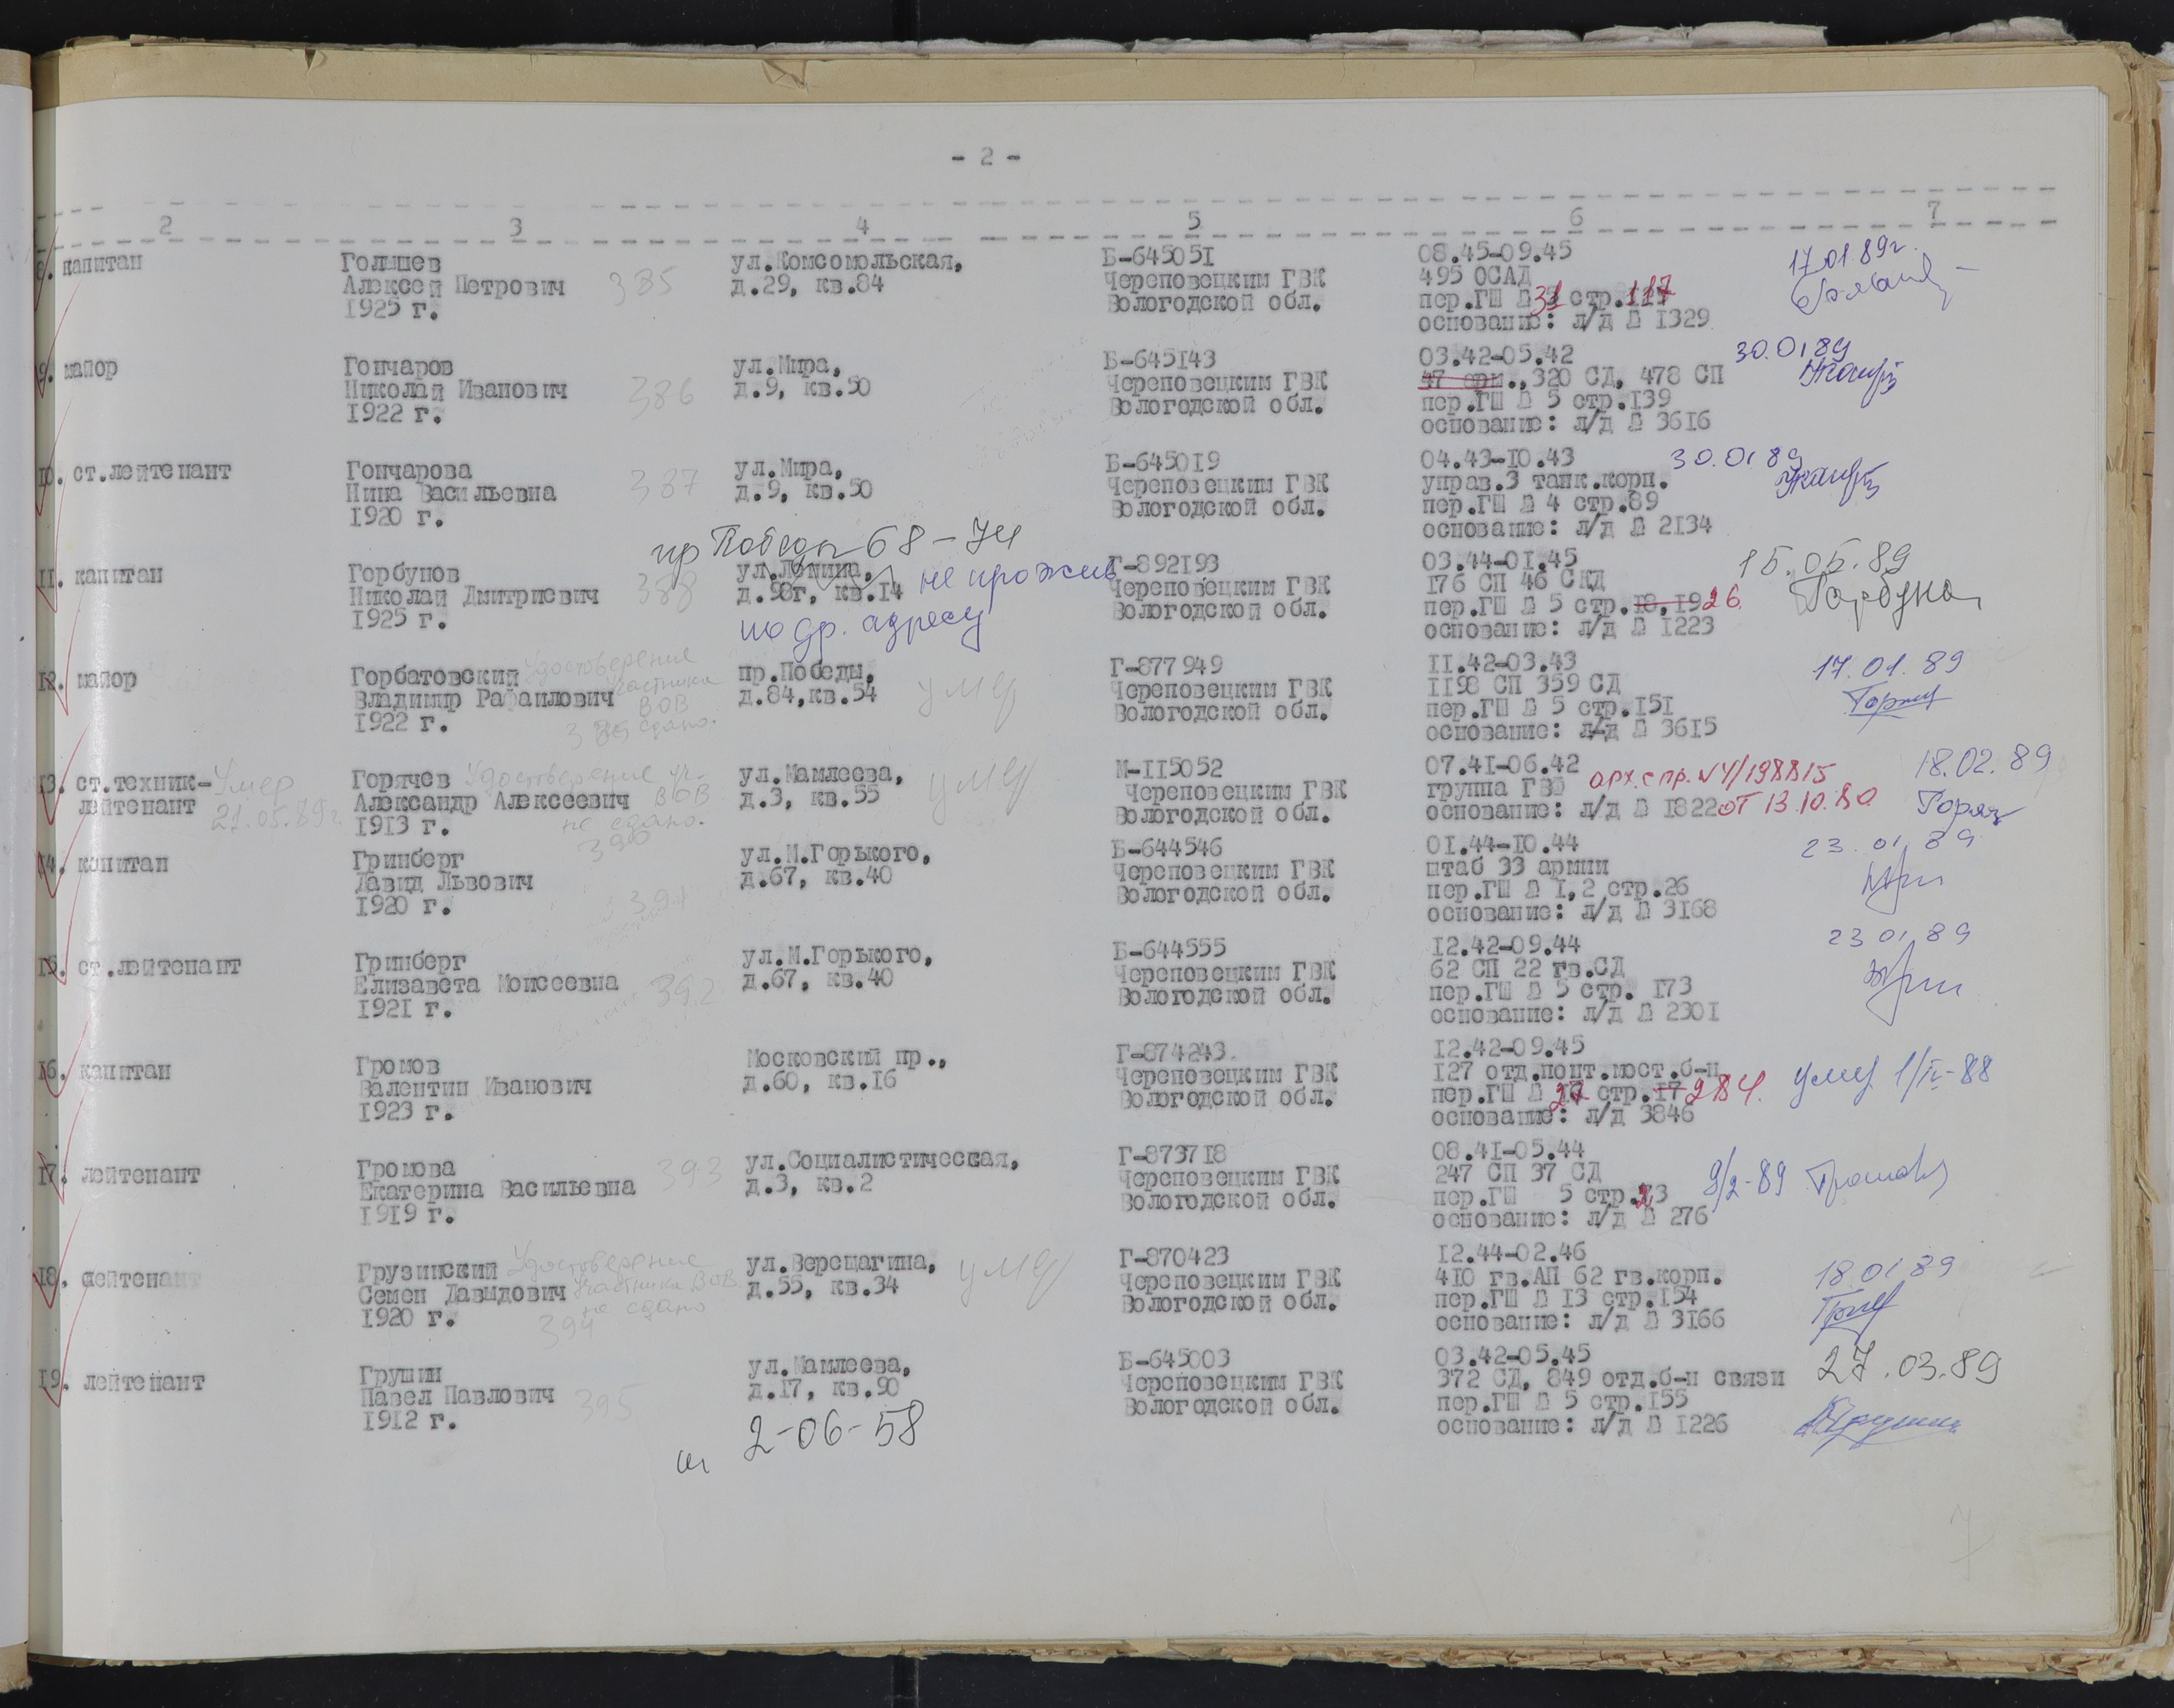 - 2 -
2 3 4 5 6 7
8. капитан
Голышев
Алексей Петрович 385
1925 г.
ул.Комсомольская,
д.29, кв.84
Б-645051
Череповецким ГВК
Вологодской обл.
08.45-09.45
495 ОСАД
пер.ГШ № 31 стр.117
основание: л/д № 1329
17.01.89г.
9. майор
Гончаров
Николай Иванович 386
1922 г.
ул.Мира,
д.9, кв.50
Б-645143
Череповецким ГВК
Вологодской обл.
03.42-05.42
47 арм.,320 СД, 478 СП
пер.ГШ № 5 стр.139
основание: л/д № 3616
30.01 89
10. ст.лейтенант
Гончарова
Нина Васильевна 387
1920 г.
ул.Мира,
д.9, кв.50
Б-645019
Череповецким ГВК
Вологодской обл.
04.43-10.43
управ.3 танк.корп.
пер.ГШ № 4 стр.89
основание: л/д № 2134
30.01 89
11. капитан
Горбунов
Николай Дмитриевич 388
1925 г.
пр Победы 68-74
ул.Ленина,
д.98г, кв.14 не прожив
по др. адресу
Г-892193
Череповецким ГВК
Вологодской обл.
03.44-01.45
176 СП 46 СКД
пер.ГШ № 5 стр.18,19 26.
основание: л/д № 1223
15.05.89
Горбунов
12. майор
Горбатовский Удостоверение
Владимир Рафаилович участника
ВОВ
1922 г. 389 сдано.
пр.Победы,
д.84,кв.54 умер
Г-877949
Череповецким ГВК
Вологодской обл.
11.42-03.43
1198 СП 359 СД
пер.ГШ № 5 стр.151
основание: л/д № 3615
17.01.89
13. ст.техник- Умер
лейтенант 21.05.89г.
Горячев Удостоверение уч.
Александр Алексеевич ВОВ
1913 г. не сдано.
390
ул.Мамлеева,
д.3, кв.55 умер
М-115052
Череповецким ГВК
Вологодской обл.
07.41-06.42
группа ГВФ арх.спр. №4/198815
основание: л/д № 1822 от 13.10.80
18.02.89
Горяч
14. капитан
Гринберг
Давид Львович
1920 г. 391
ул.М.Горького,
д.67, кв.40
Б-644546
Череповецким ГВК
Вологодской обл.
01.44-10.44
штаб 33 армии
пер.ГШ № 1,2 стр.26
основание: л/д № 3168
23.01 89
15. ст.лейтенант
Гринберг
Елизавета Моисеевна 392
1921 г.
ул.М.Горького,
д.67, кв.40
Б-644555
Череповецким ГВК
Вологодской обл.
12.42-09.44
62 СП 22 гв.СД
пер.ГШ № 5 стр. 173
основание: л/д № 2301
23 01 89
16. капитан
Громов
Валентин Иванович
1923 г.
Московский пр.,
д.60, кв.16
Г-874243.
Череповецким ГВК
Вологодской обл.
12.42-09.45
127 отд.понт.мост.б-н
пер.ГШ № 27 стр.17 284.
основание: л/д 3846
умер 1/IV-88
17. лейтенант
Громова 393
Екатерина Васильевна
1919 г.
ул.Социалистическая,
д.3, кв.2
Г-873718
Череповецким ГВК
Вологодской обл.
08.41-05.44
247 СП 37 СД
пер.ГШ 5 стр.23
основание: л/д № 276
9/2-89 Громова
18. лейтенант
Грузинский Удостоверение
Семен Давыдович участника ВОВ
не сдано
1920 г. 394
ул.Верещагина,
д.55, кв.34 умер
Г-870423
Череповецким ГВК
Вологодской обл.
12.44-02.46
410 гв.АП 62 гв.корп.
пер.ГШ № 13 стр.154
основание: л/д № 3166
18.01 89
19. лейтенант
Грушин
Павел Павлович 395
1912 г.
ул.Мамлеева,
д.17, кв.90
2-06-58
Б-645003
Череповецким ГВК
Вологодской обл.
03.42-05.45
372 СД, 849 отд.б-н связи
пер.ГШ № 5 стр.155
основание: л/д № 1226
27.03.89
7